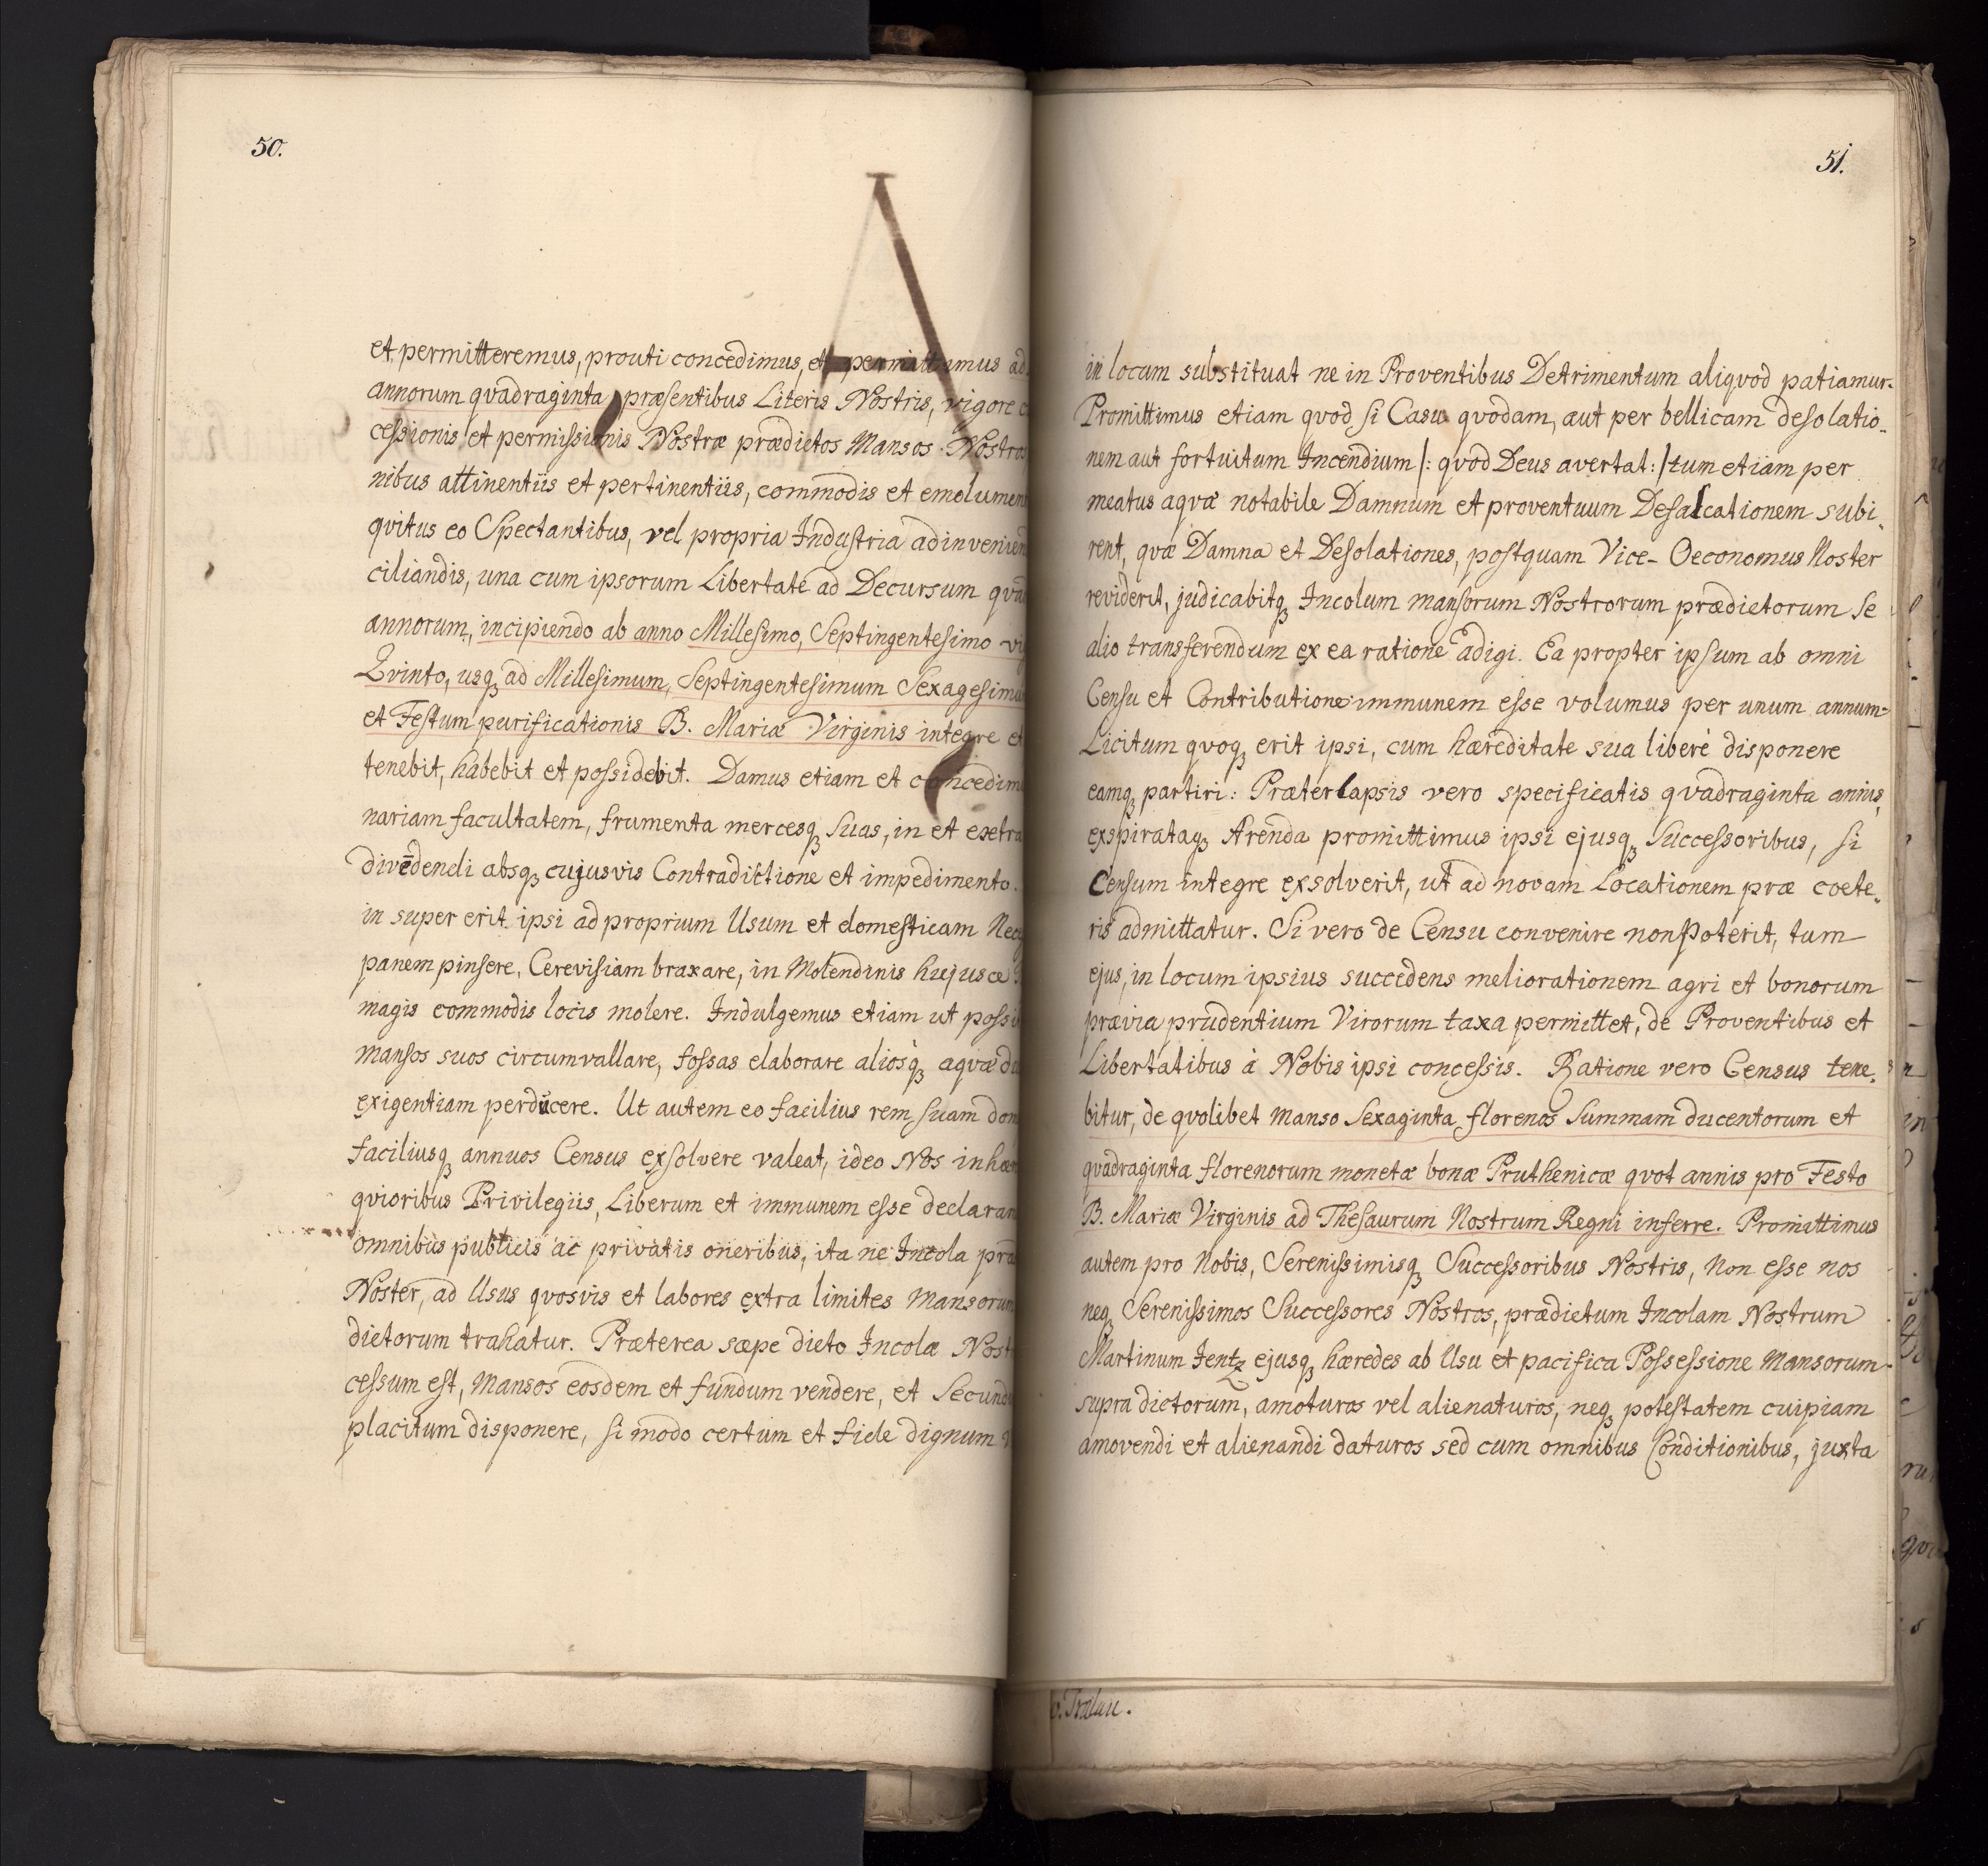 50.
et permitteremus, prouti concedimus, et permittimus ad
annorum qvadraginta præsentibus Literis Nostris, vigore
cessionis et permissionis Nostræ prædictos Mansos Nostros
nibus attinentiis et pertinentiis, commodis et emolumen
qvitus eo Spectantibus, vel propria Industria adinvenien
ciliandis, una cum ipsorum Libertate ad Decursum qva
annorum, incipiendo ab anno Millesimo, Septingentesimo vi
Qvinto, usq3 ad Millesimum, Septingentesimum Sexagesimu
et Festum purificationis B. Mariæ Virginis integre et
tenebit, habebit et possidebit. Damus etiam et concedim
nariam facultatem, frumenta mercesq3 suas, in et exetra
divēdendi absq3 cujusvis Contradictione et impedimento.
in super erit ipsi ad proprium Usum et domesticam Nec
panem pinsere, Cerevisiam braxare, in Molendinis hujusce
magis commodis locis molere. Indulgemus etiam ut possi
mansos suos circumvallare, fossas elaborare aliosq3 aqvæ d
exigentiam perducere. Ut autem eo facilius rem suam dom
faciliusq3 annuos Census exsolvere valeat, ideo Nos inhær
qvioribus Privilegiis, Liberum et immunem esse declaram
omnibus publicis ac privatis oneribus, ita ne Incola præ
Noster, ad Usus qvosvis et labores extra limites Mansorum
dictorum trahatur. Præterea sæpe dicto Incolæ Nost
cessum est, Mansos eosdem et fundum vendere, et Secund
placitum disponere, si modo certum et fide dignum
51.
in locum substituat ne in Proventibus Detrimentum aliqvod patiamur.
Promittimus etiam qvod si Casu qvodam, aut per bellicam desolatio-
nem aut fortuitum Incendium /: qvod Deus avertat: / tum etiam per
meatus aqvæ notabile Damnum et proventuum Desalcationem subi-
rent, qvæ Damna et Desolationes, postquam Vice-Oeconomus Noster
reviderit, judicabitq3 Incolum mansorum Nostrorum prædictorum se
alio transferendum ex ea ratione adigi. Ea propter ipsum ab omni
Censu et Contributione immunem esse volumus per unum annum.
Licitum qvoq3 erit ipsi, cum hæreditate sua liberè disponere
eamq3 partiri: Præterlapsis vero specificatis qvadraginta annis,
exspirataq3 Arenda promittimus ipsi ejusq3 Successoribus, si
Censum integre exsolverit, ut ad novam Locationem præ coete-
ris admittatur. Si vero de Censu convenire non poterit, tum
ejus, in locum ipsius succedens meliorationem agri et bonorum
prævia prudentium Virorum taxa permittet, de Proventibus et
Libertatibus à Nobis ipsi concessis. Ratione vero Census tene-
bitur, de qvolibet manso Sexaginta florenos Summam ducentorum et
qvadraginta florenorum monetæ bonæ Pruthenicæ qvot annis pro Festo
B. Mariæ Virginis ad Thesaurum Nostrum Regni inferre. Promittimus
autem pro Nobis, Serenissimisq3 Successoribus Nostris, Non esse nos
neq3 Serenissimos Successores Nostros, prædictum Incolam Nostrum
Martinum Jentz ejusq3 hæredes ab Usu et pacifica Possessione Mansorum
supra dictorum, amoturos vel alienaturos, neq3 potestatem cuipiam
amovendi et alienandi daturos sed cum omnibus Conditionibus, juxta